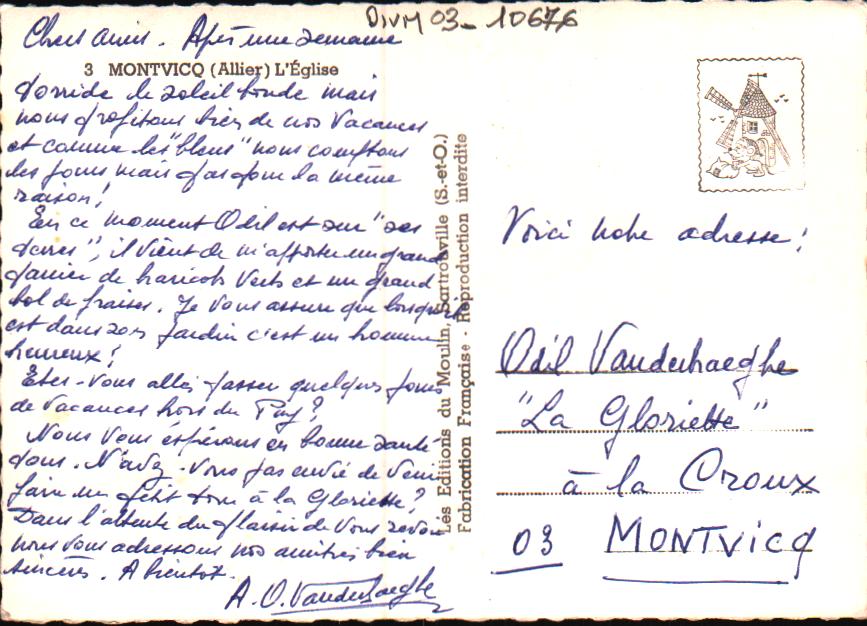 DIVM 03-10676
Chers amis. Après une semaine
3 MONTVICQ (Allier) L'Église
torride le soleil boude mais
nous profitons bien de nos vacances
et comme les "bleus" nous comptons
les jours mais pas pour la même
raison!
En ce moment Odil est sur "ses
terres", il vient de m'apporter un grand
panier de haricots verts et un grand
bol de fraises. Je vous assure que lorsqu'il
est dans son jardin c'est un homme
heureux!
Etes-vous allés passer quelques jours
de vacances hors du Puy?
Nous vous espérons en bonne santé
tous. N'avez-vous pas envie de venir
faire un petit tour à la Gloriette?
Dans l'attente du plaisir de vous revoir
nous vous adressons nos amitiés bien
sincères. A bientôt.
A.O. Vanderhaeghe
Les Editions du Moulin, Sartrouville (S.-et-O.)
Fabrication Française - Reproduction interdite
Voici notre adresse:
Odil Vanderhaeghe
"La Gloriette"
à la Croux
03 MONTVICQ